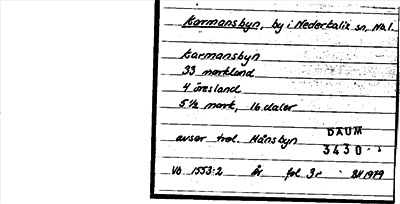 Karmansbyn, by i Nederkalix sn, Nbl.
Karmansbyn
33 markland
4 öresland
5 1/2 mark, 16 daler
avser trol. Månsbyn
DAUM
3430
Vb 1553:2 år fol 3r BH 1979